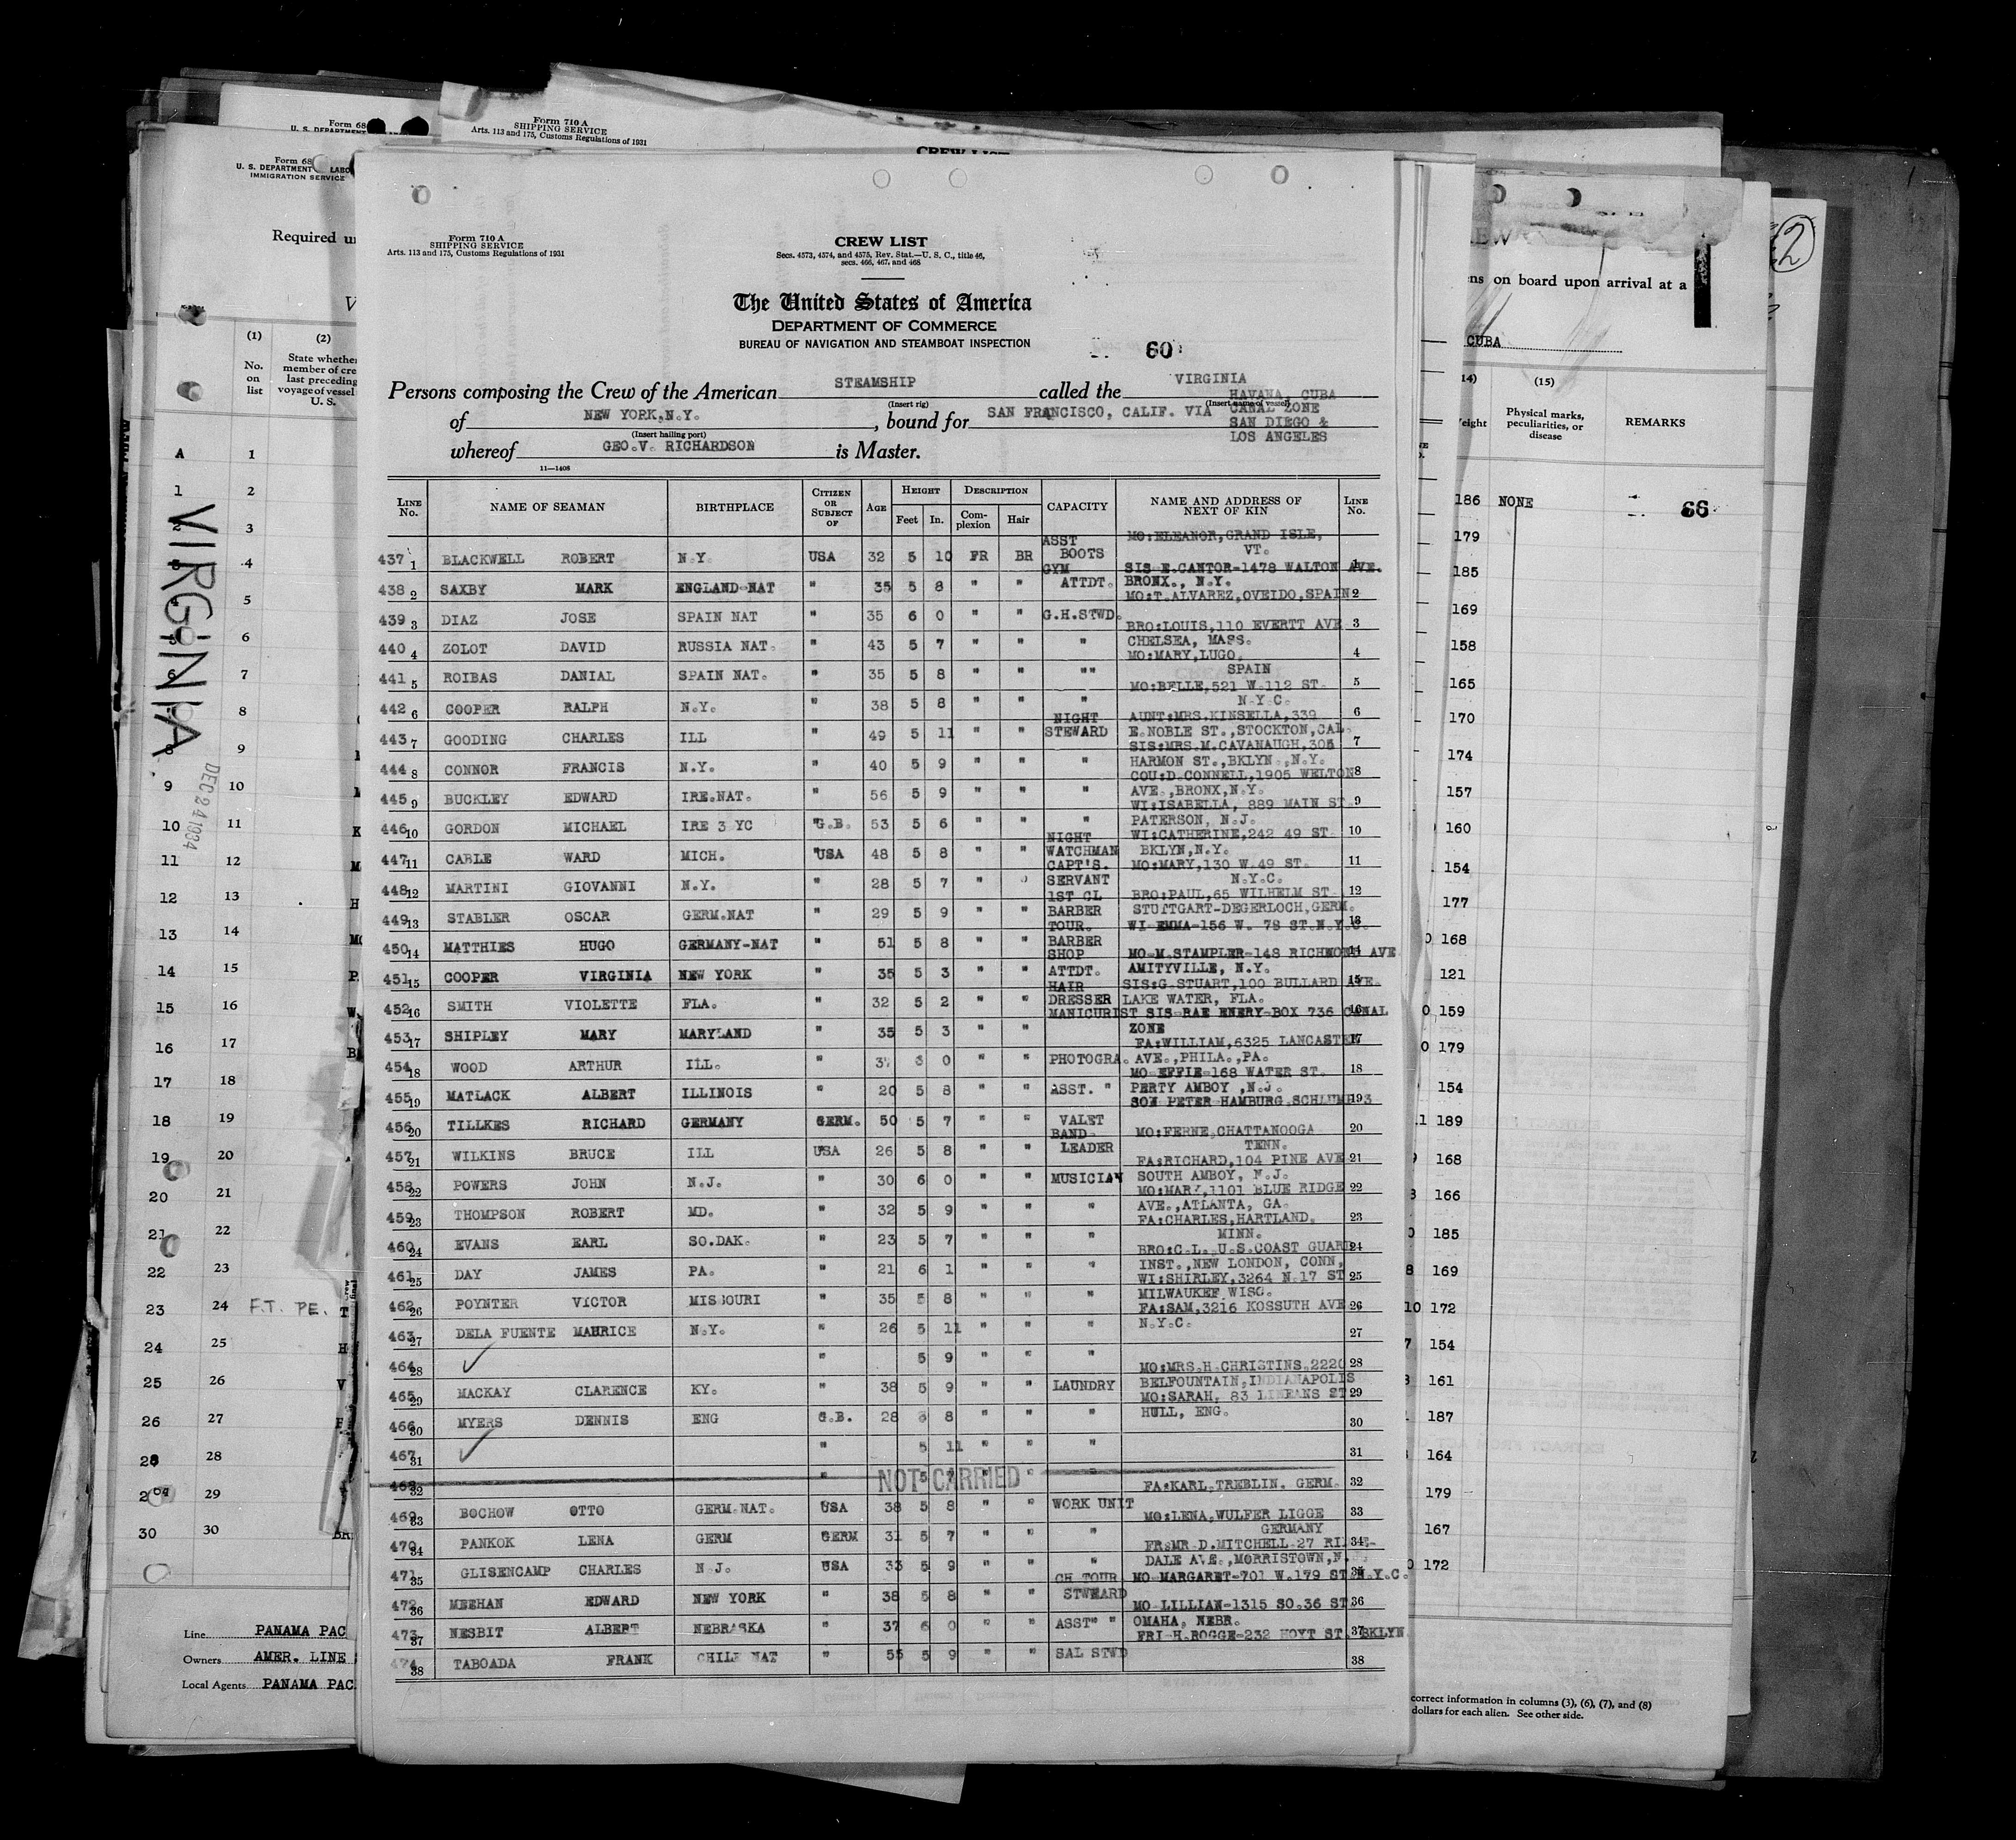 Form 710 A
SHIPPING SERVICE
Arts. 113 and 175, Customs Regulations of 1931
CREW LIST
Form 68
U. S. DEPARTMENT
Form 68
U. S. DEPARTMENT LABO
IMMIGRATION SERVICE
Required un
(1) (2)
No. on list
State whether member of cre last preceding voyage of vessel U. S.
VIRGINIA
DEC 24 1934
F.T. PE.
Line PANAMA PAC
Owners AMER. LINE
Local Agents PANAMA PAC
Form 710 A
SHIPPING SERVICE
Arts. 113 and 175, Customs Regulations of 1931
CREW LIST
Secs. 4573, 4574, and 4575, Rev. Stat.—U. S. C., title 46,
secs. 466, 467, and 468
The United States of America
DEPARTMENT OF COMMERCE
BUREAU OF NAVIGATION AND STEAMBOAT INSPECTION
60
Persons composing the Crew of the American STEAMSHIP called the VIRGINIA
(Insert rig) (Insert name of vessel)
of NEW YORK,N.Y. , bound for SAN FRANCISCO, CALIF. VIA HAVANA, CUBA
CANAL ZONE
SAN DIEGO &
LOS ANGELES
(Insert hailing port)
whereof GEO.V. RICHARDSON is Master.
11—1408
LINE No. NAME OF SEAMAN BIRTHPLACE CITIZEN OR SUBJECT OF AGE HEIGHT Feet In. DESCRIPTION Complexion Hair CAPACITY NAME AND ADDRESS OF NEXT OF KIN LINE No.
437 1 BLACKWELL ROBERT N.Y. USA 32 5 10 FR BR ASST BOOTS MO:ELEANOR,GRAND ISLE, VT. 1
438 2 SAXBY MARK ENGLAND-NAT " 35 5 8 " " GYM ATTDT. SIS E.CANTOR-1478 WALTON AVE. BRONX., N.Y. 2
439 3 DIAZ JOSE SPAIN NAT " 35 6 0 " " G.H.STWD. MO:T.ALVAREZ,OVEIDO,SPAIN 3
440 4 ZOLOT DAVID RUSSIA NAT. " 43 5 7 " " " BRO:LOUIS,110 EVERTT AVE CHELSEA, MASS. 4
441 5 ROIBAS DANIAL SPAIN NAT. " 35 5 8 " " "" MO:MARY,LUGO. SPAIN 5
442 6 COOPER RALPH N.Y. " 38 5 8 " " " MO:BELLE,521 W.112 ST. N.Y.C. 6
443 7 GOODING CHARLES ILL " 49 5 11 " " NIGHT STEWARD AUNT:MRS.KINSELLA,339 E.NOBLE ST.,STOCKTON,CAL. 7
444 8 CONNOR FRANCIS N.Y. " 40 5 9 " " " SIS:MRS.M.CAVANAUGH,305 HARMON ST.,BKLYN.,N.Y. 8
445 9 BUCKLEY EDWARD IRE.NAT. " 56 5 9 " " " COU:D.CONNELL,1905 WELTON AVE.,BRONX,N.Y. 9
446 10 GORDON MICHAEL IRE 3 YC "G.B. 53 5 6 " " " WI:ISABELLA, 889 MAIN ST. PATERSON, N.J. 10
447 11 CABLE WARD MICH. "USA 48 5 8 " " NIGHT WATCHMAN WI:CATHERINE,242 49 ST. BKLYN,N.Y. 11
448 12 MARTINI GIOVANNI N.Y. " 28 5 7 " " CAPT'S. SERVANT MO:MARY,130 W.49 ST. N.Y.C. 12
449 13 STABLER OSCAR GERM.NAT " 29 5 9 " " 1ST CL BARBER BRO:PAUL,65 WILHELM ST. STUTTGART-DEGERLOCH,GERM. 13
450 14 MATTHIES HUGO GERMANY-NAT " 51 5 8 " " TOUR. BARBER WI-EMMA-156 W. 78 ST.N.Y.C. 14
451 15 COOPER VIRGINIA NEW YORK " 35 5 3 " " SHOP ATTDT. MO-M.STAMPLER-148 RICHMOND AVE AMITYVILLE, N.Y. 15
452 16 SMITH VIOLETTE FLA. " 32 5 2 " " HAIR DRESSER SIS:G.STUART,100 BULLARD AVE. LAKE WATER, FLA. 16
453 17 SHIPLEY MARY MARYLAND " 35 5 3 " " MANICURIST SIS-RAE ENERY-BOX 736 CANAL ZONE 17
454 18 WOOD ARTHUR ILL. " 6 0 " " PHOTOGRA. FA:WILLIAM,6325 LANCASTER AVE.,PHILA.,PA. 18
455 19 MATLACK ALBERT ILLINOIS " 20 5 8 " " ASST. " MO-EFFIE-168 WATER ST. PERTY AMBOY ,N.J. 19
456 20 TILLKES RICHARD GERMANY GERM. 50 5 7 " " VALET SON PETER-HAMBURG 20
457 21 WILKINS BRUCE ILL USA 26 5 8 " " BAND LEADER MO:FERNE,CHATTANOOGA TENN. 21
458 22 POWERS JOHN N.J. " 30 6 0 " " MUSICIAN FA:RICHARD,104 PINE AVE SOUTH AMBOY, N.J. 22
459 23 THOMPSON ROBERT MD. " 32 5 9 " " " MO:MARY,1101 BLUE RIDGE AVE.,ATLANTA, GA. 23
460 24 EVANS EARL SO.DAK. " 23 5 7 " " " FA:CHARLES,HARTLAND. MINN. 24
461 25 DAY JAMES PA. " 21 6 1 " " " BRO:C.L. U.S.COAST GUARD INST.,NEW LONDON, CONN, 25
462 26 POYNTER VICTOR MISSOURI " 35 5 8 " " " WI:SHIRLEY,3264 N.17 ST MILWAUKEE,WISC. 26
463 27 DELA FUENTE MAURICE N.Y. " 26 5 11 " " " FA:SAM,3216 KOSSUTH AVE N.Y.C. 27
464 28 " 5 9 " " " 28
465 29 MACKAY CLARENCE KY. " 38 5 9 " " LAUNDRY MO:MRS.H.CHRISTINS.2220 BELFOUNTAIN,INDIANAPOLIS 29
466 30 MYERS DENNIS ENG G.B. 28 8 " " " MO:SARAH, 83 ST HULL, ENG. 30
467 31 " 5 11 " " " 31
468 32 " NOT CARRIED " 32
469 33 BOCHOW OTTO GERM.NAT. USA 38 5 8 " " WORK UNIT FA:KARL,TREBLIN. GERM. 33
470 34 PANKOK LENA GERM GERM 31 5 7 " " " MO:LENA,WULFER LIGGE GERMANY 34
471 35 GLISENCAMP CHARLES N.J. USA 33 5 9 " " " FR:MR.D.MITCHELL-27 DALE AVE.,MORRISTOWN,N. 35
472 36 MEEHAN EDWARD NEW YORK " 38 5 8 " " CH TOUR STWEARD MO-MARGARET-701 W.179 ST.N.Y.C. 36
473 37 NESBIT ALBERT NEBRASKA " 37 6 0 " " ASST" " MO-LILLIAN-1315 SO.36 ST OMAHA, NEBR. 37
474 38 TABOADA FRANK CHILE NAT " 55 5 9 " " SAL STWD FRI-H.ROGGE-232 HOYT ST. BKLYN. 38
2
ens on board upon arrival at a
CUBA
14) (15)
eight
Physical marks, peculiarities, or disease
REMARKS
186 NONE
66
179
185
169
158
165
170
174
157
160
154
177
168
121
159
179
154
189
168
166
185
169
172
154
161
187
164
179
167
172
correct information in columns (3), (6), (7), and (8)
dollars for each alien. See other side.